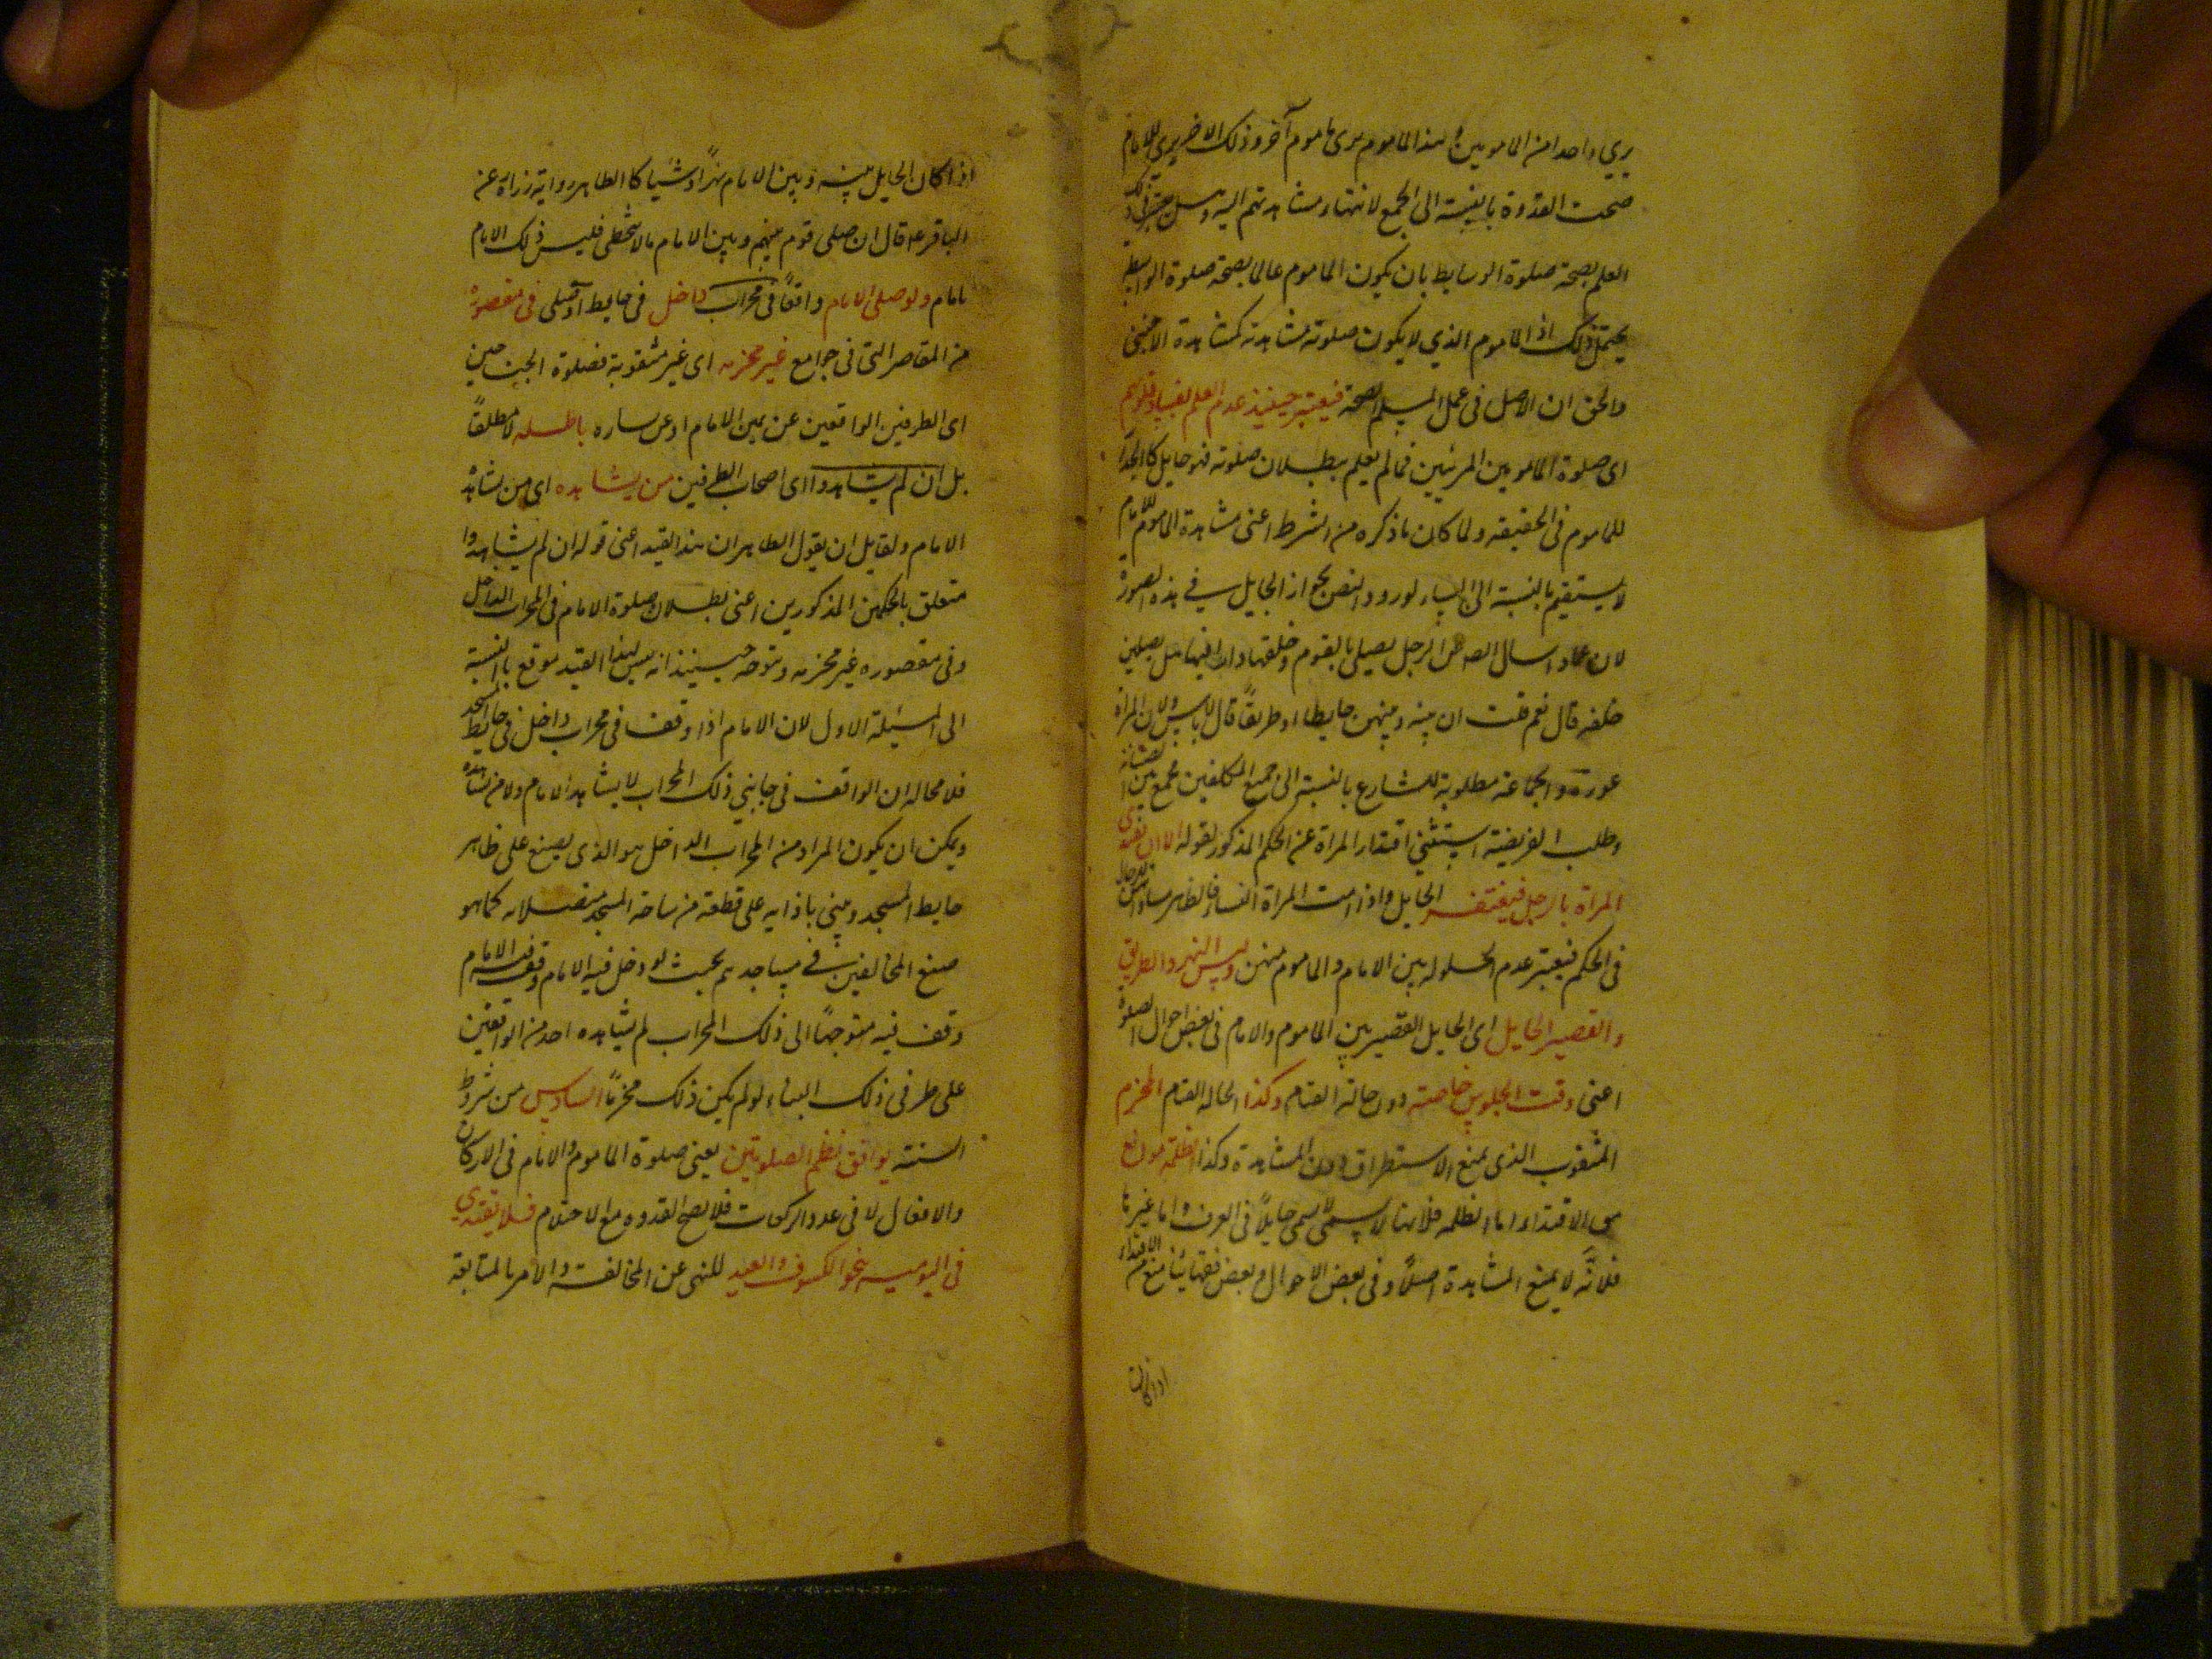 يري واحدا من المامومين وهذا الماموم يرى ماموم آخر وذلك الاخر يري الامام
صحت القدوة بالنسبة الى الجمع لانتهاء مشاهدتهم اليه وهل يعتبر في ذلك
العلم بصحة صلوة الوسايط بان يكون الماموم عالما بصحة صلوة الواسطة
يحتمل ذلك اذ الماموم الذي لا يكون صلوته مشاهدته كمشاهدة الاجنبي
والحق ان الاصل في عمل المسلم الصحة فيعتبر حينئذ عدم العلم بفساد صلوتهم
اى صلوة المامومين المرئيين فما لم يعلم ببطلان صلوته فهو حايل كالجدار
للماموم في الحقيقه ولما كان ما ذكره من الشرط اعنى مشاهدة الماموم للامام
لا يستقيم بالنسبة الى النساء لورود النص بجواز الحايل في هذه الصورة
لان عمار سال الصادق عن الرجل يصلى بالقوم وخلفها دار فيها نساء هل يصلين
خلفه قال نعم قلت ان بينه وبينهن حايطا او طريقاً قال لا باس ولان المراة
عورة والجماعة مطلوبة للشارع بالنسبة الى جميع المكلفين فجمع بين الصيانة
وطلب الفريضة استثنى اقتداء المراة عن الحكم المذكور بقوله الا ان تقتدي
المراة بالرجل فيغتفر الحايل واذا امت المراة النساء فالظاهر مساواتهن للرجال
في الحكم فيعتبر عدم الحيلوله بين الامام والماموم منهن وليس النهر والطريق
والقصير الحايل اى الحايل القصير بين الماموم والامام فى بعض احوال الصلوة
اعنى وقت الجلوس خاصته دون حالة القيام وكذا لحاله القيام المخرم
المثقوب الذى يمنع الاستطراق دون المشاهدة وكذا الظلمة موانع
من الاقتداء اما الظلمه فلانها لا يسمى حايلاً فى العرف واما غيرها
فلانَّه لا يمنع المشاهدة اصلاً وفى بعض الاحوال وبعض فقهائنا منع من الاقتداء
اذا كان
اذا كان الحايل بينه وبين الامام نهراً وشبا كا الظاهر رواية زراره عن
الباقر ع قال ان صلى قوم بينهم وبين الامام ما لا يتخطى فليس ذلك الامام
بامام ولو صلى الامام واقعاً فى محراب داخل فى حايط او صلى فى مقصورة
من المقاصر التى فى جوامع غير مخرمه اى غير مثقوبة فصلوة الجنبتين
اى الطرفين الواقعين عن يمين الامام او عن يساره باطله لا مطلقاً
بل ان لم يشاهدوا اى اصحاب الطرفين من يشاهده اى من يشاهد
الامام ولقايل ان يقول الظاهر ان هذا القيد اعنى قوله ان لم يشاهدوا
متعلق بالحكمين المذكورين اعنى بطلان صلوة الامام فى المحراب الداخل
وفى مقصوره غير مخرمه وتوجه حينئذ انه ليس لهذا القيد موقع بالنسبة
الى المسئلة الاولى لان الامام اذا وقف فى محراب داخل فى حايط المسجد
فلا محاله ان الواقف فى جانبي ذلك المحراب لا يشاهد الامام ولا من يشاهده
ويمكن ان يكون المراد من المحراب الداخل هو الذى يصنع على ظاهر
حايط المسجد ويبنى باذائه على قطعة من ساحة المسجد متصلا به كما هو
صنع المخالفين فى مساجدهم بحيث لو دخل فيه الامام وقف فيه الامام
وقف فيه متوجهاً الى ذلك المحراب لم يشاهده احد من الواقفين
على طرفى ذلك البناء لو لم يكن ذلك مخرماً السادس من شروط
السته توافق نظم الصلوتين يعنى صلوة الماموم والامام فى الاركان
والافعال لا فى عدد الركعات فلا يصح القدوه مع الاختلاف فلا يقتدي
فى اليوميه بنحو الكسوف والعيد للنهى عن المخالفة والامر بالمتابعة